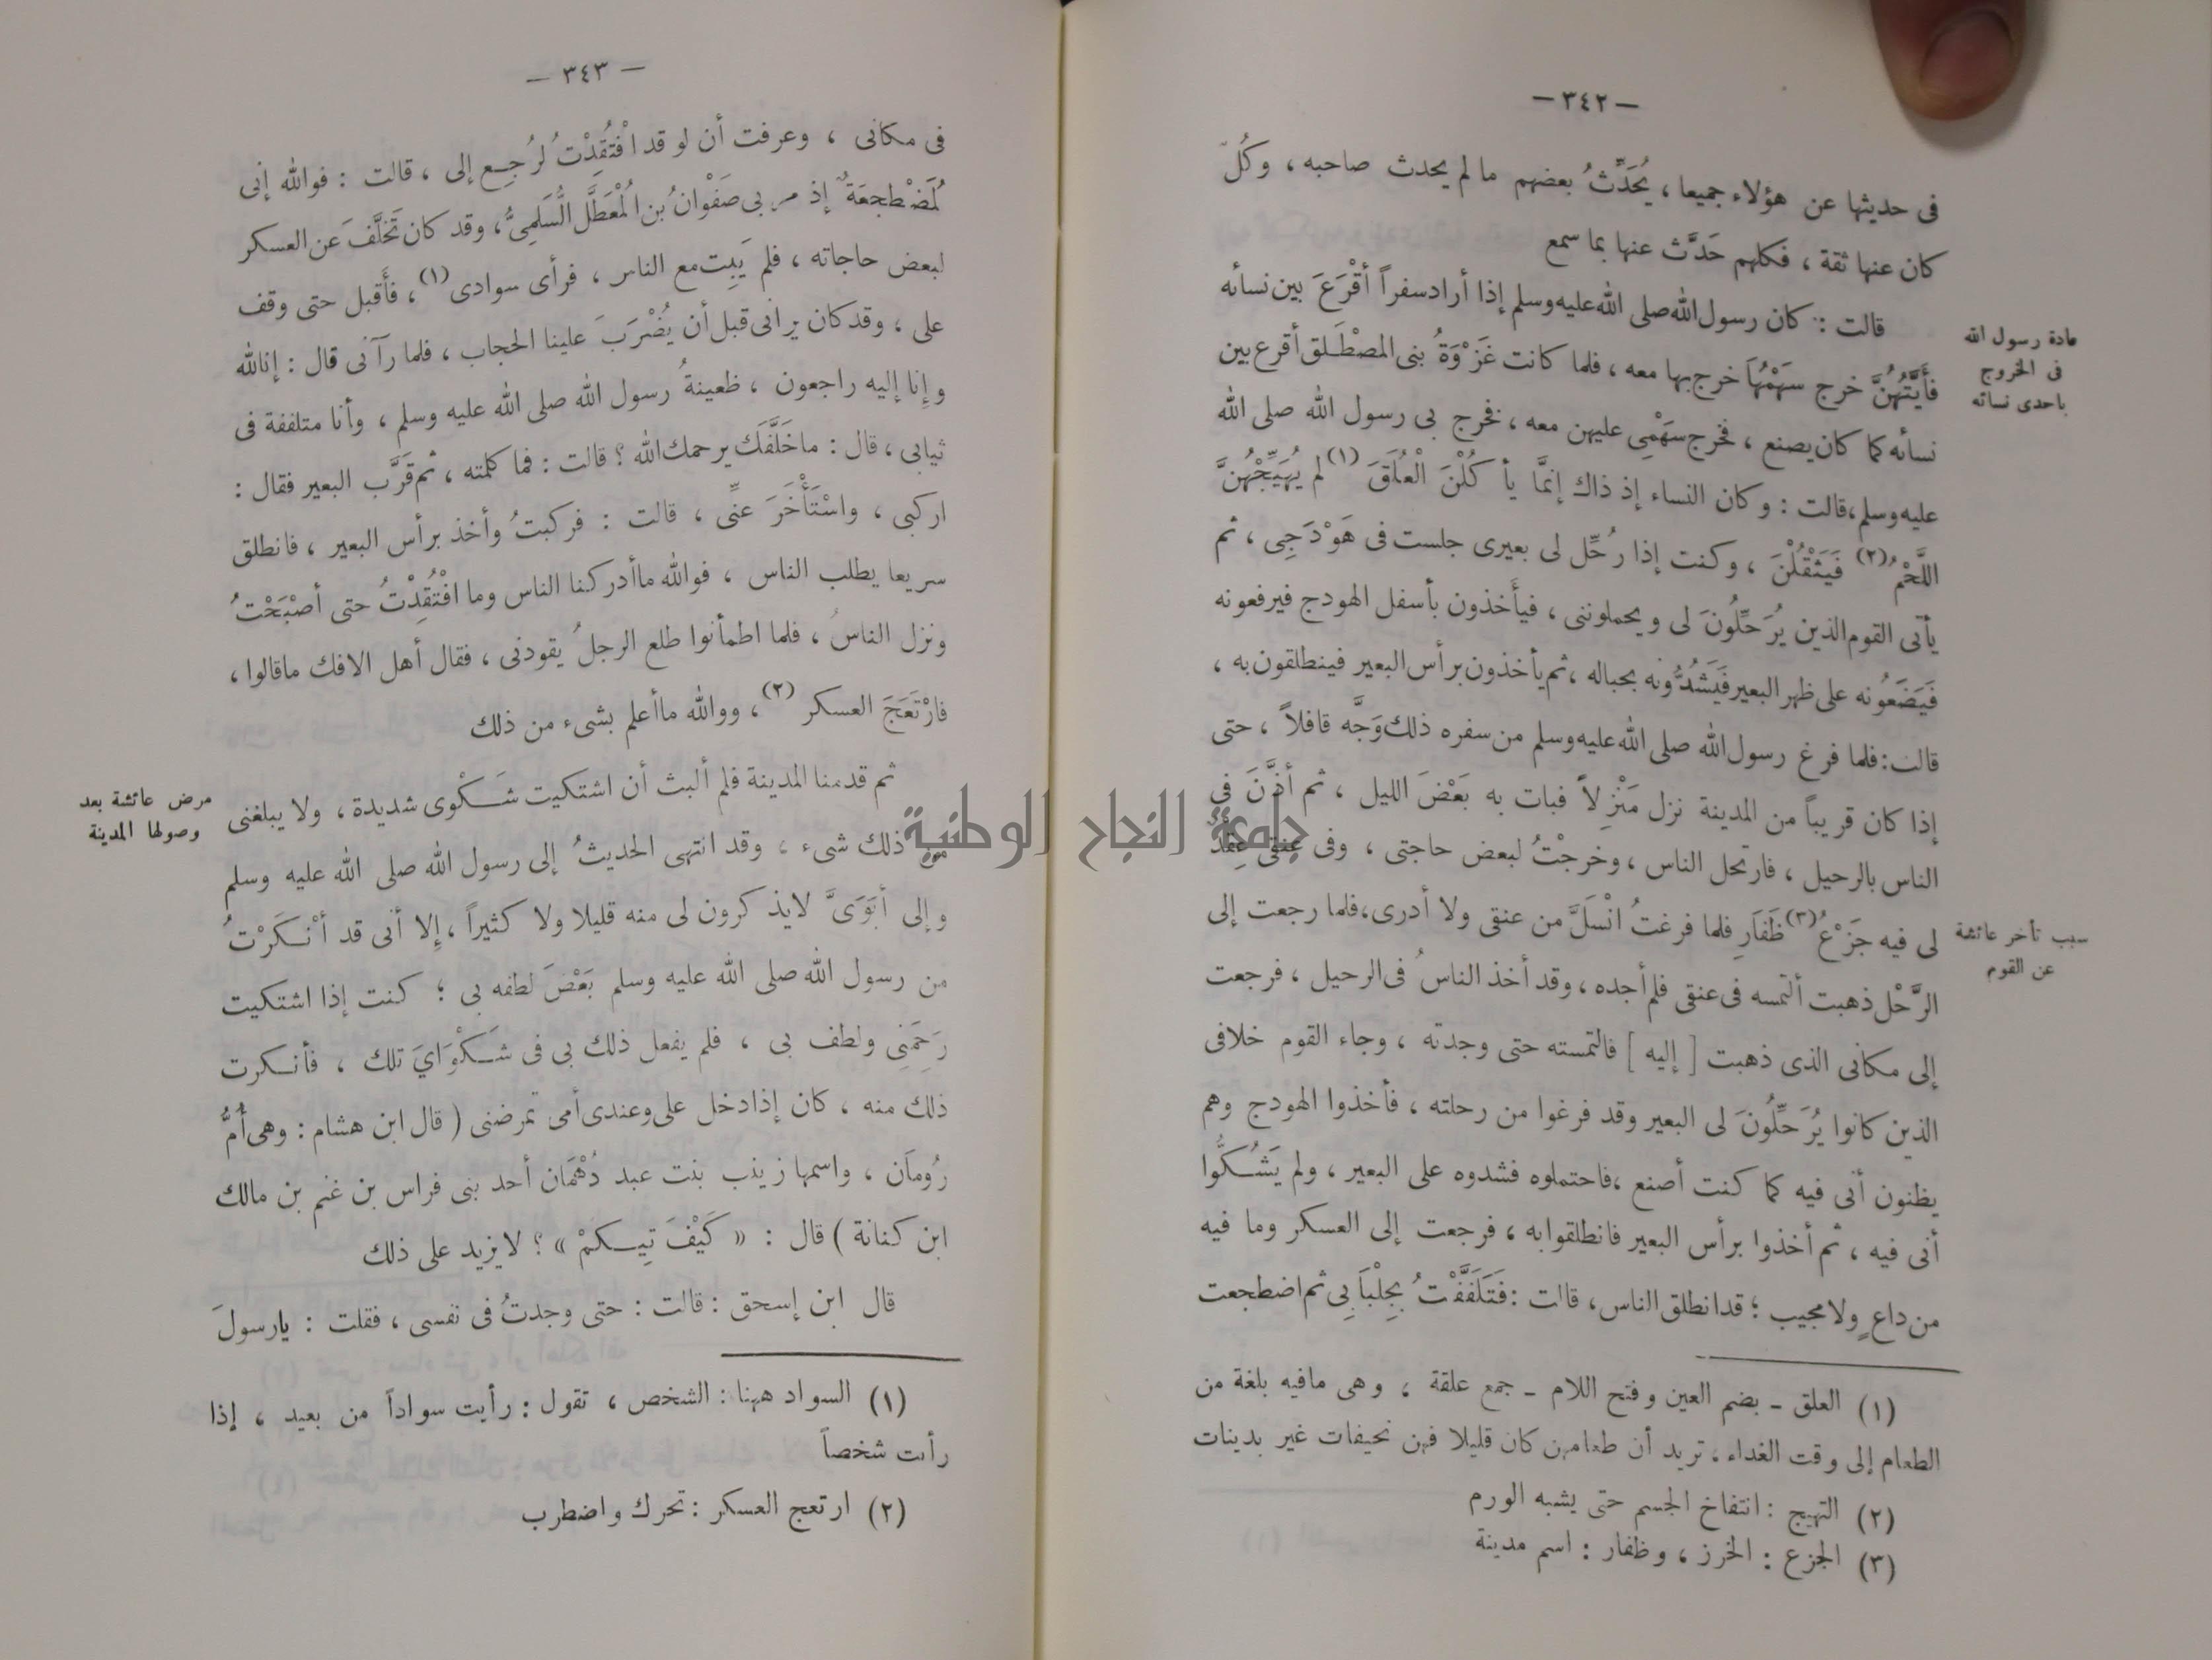 — ٣٤٢ —
فى حديثها عن هؤلاء جميعا ، يُحَدِّثُ بعضهم ما لم يحدث صاحبه ، وكُلّ
كان عنها ثقة ، فكلهم حَدَّث عنها بما سمع
قالت : كان رسول الله صلى الله عليه وسلم إذا أراد سفراً أقْرَعَ بين نسائه
عادة رسول الله
فى الخروج
باحدى نسائه
فأيَّتُهُنَّ خرج سهَمْهُاَ خرج بها معه ، فلما كانت غَزْوَةُ بنى المصْطَلق أقرع بين
نسائه كما كان يصنع ، فخرج سهَمْىِ عليهن معه ، فخرج بى رسول الله صلى الله
عليه وسلم ، قالت : وكان النساء إذ ذاك إنمَّا يأ كُلْنَ الْعُلَقَ (١) لم يُهَيِّجْهُنَّ
اللَّحْمُ (٢) فَيَثْقُلْنَ ، وكنت إذا رُحِّل لى بعيرى جلست فى هَوْدَجِى ، ثم
يأتى القوم الذين يُرَحِّلُونَ لى ويحملوننى ، فيأخذون بأسفل الهودج فيرفعونه
فَيَضَعُونه على ظهر البعير فَيَشُدُّونه بحباله ، ثم يأخذون برأس البعير فينطلقون به ،
قالت : فلما فرغ رسول الله صلى الله عليه وسلم من سفره ذلك وَجَّه قافلاً ، حتى
إذا كان قريباً من المدينة نزل مَنْزِلاً فبات به بَعْضَ الليل ، ثم أذَّنَ فى
الناس بالرحيل ، فارتحل الناس ، وخرجْتُ لبعض حاجتى ، وفى عنقى عِقْدٌ
لى فيه جَزْعُ (٣) ظَفَارِ فلما فرغتُ انْسَلَّ من عنقى ولا أدرى ، فلما رجعت إلى
سبب تأخر عائشة
عن القوم
الرَّحْل ذهبت ألتمسه فى عنقى فلم أجده ، وقد أخذ الناسُ فى الرحيل ، فرجعت
إلى مكانى الذى ذهبت [ إليه ] فالتمسته حتى وجدته ، وجاء القوم خلافى
الذين كانوا يُرَحِّلُونَ لى البعير وقد فرغوا من رحلته ، فأخذوا الهودج وهم
يظنون أنى فيه كما كنت أصنع ، فاحتملوه فشدوه على البعير ، ولم يَشُكُّوا
أنى فيه ، ثم أخذوا برأس البعير فانطلقوا به ، فرجعت إلى العسكر وما فيه
من داعٍ ولا مجيب ؛ قد انطلق الناس ، قالت : فَتَلَفَّفْتُ بِجِلْبَابِى ثم اضطجعت
(١) العلق - بضم العين وفتح اللام - جمع علقة ، وهى مافيه بلغة من
الطعام إلى وقت الغداء ، تريد أن طعامهن كان قليلا فهن نحيفات غير بدينات
(٢) التهيج : انتفاخ الجسم حتى يشبه الورم
(٣) الجزع : الخرز ، وظفار : اسم مدينة
— ٣٤٣ —
فى مكانى ، وعرفت أن لو قد افْتُقِدْتُ لرُجِع إلى ، قالت : فوالله إنى
لَمضْطجعَةٌ إذ مر بى صَفْوَانُ بن المُعَطَّل السُّلَمِىُّ ، وقد كان تَخَلَّفَ عن العسكر
لبعض حاجاته ، فلم يَبِت مع الناس ، فرأى سوادى (١) ، فأقبل حتى وقف
على ، وقد كان يرانى قبل أن يُضْرَبَ علينا الحجاب ، فلما رآنى قال : إنا لله
وإنا إليه راجعون ، ظعينةُ رسول الله صلى الله عليه وسلم ، وأنا متلففة فى
ثيابى ، قال : ما خَلَّفَك يرحمك الله ؟ قالت : فما كلمته ، ثم قَرَّب البعير فقال :
اركبى ، واسْتَأْخَرَ عنِّى ، قالت : فركبتُ وأخذ برأس البعير ، فانطلق
سريعا يطلب الناس ، فوالله ما أدركنا الناس وما افْتُقِدْتُ حتى أصْبَحْتُ
ونزل الناسُ ، فلما اطمأنوا طلع الرجلُ يقودنى ، فقال أهل الافك ماقالوا ،
فارْتَعَجَ العسكر (٢) ، ووالله ما أعلم بشىء من ذلك
ثم قدمنا المدينة فلم ألبث أن اشتكيت شَكْوى شديدة ، ولا يبلغنى
مرض عائشة بعد
وصولها المدينة
من ذلك شىء ، وقد انتهى الحديثُ إلى رسول الله صلى الله عليه وسلم
وإلى أبَوَىَّ لا يذكرون لى منه قليلا ولا كثيراً ، إلا أنى قد أنْكَرْتُ
من رسول الله صلى الله عليه وسلم بَعْضَ لطفه بى ؛ كنت إذا اشتكيت
رَحِمَنِى ولطف بى ، فلم يفعل ذلك بى فى شَكْوَاىَ تلك ، فأنكرت
ذلك منه ، كان إذا دخل على وعندى أمى تمرضنى ( قال ابن هشام : وهى أُمُّ
رُومَان ، واسمها زينب بنت عبد دُهْمَان أحد بنى فراس بن غنم بن مالك
ابن كنانة ) قال : « كَيْفَ تِيكمْ » ؟ لا يزيد على ذلك
قال ابن إسحق : قالت : حتى وجدتُ فى نفسى ، فقلت : يارسولَ
(١) السواد ههنا : الشخص ، تقول : رأيت سواداً من بعيد ، إذا
رأيت شخصاً
(٢) ارتعج العسكر : تحرك واضطرب
جامعة النجاح الوطنية